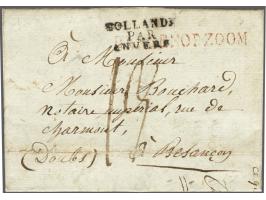 HOLLANDE
PAR
ANVERS
OPZOOM
à Monsieur
Monsieur Bouchard,
notaire impérial, rue de
charmont,
(Doubs) à Besançon